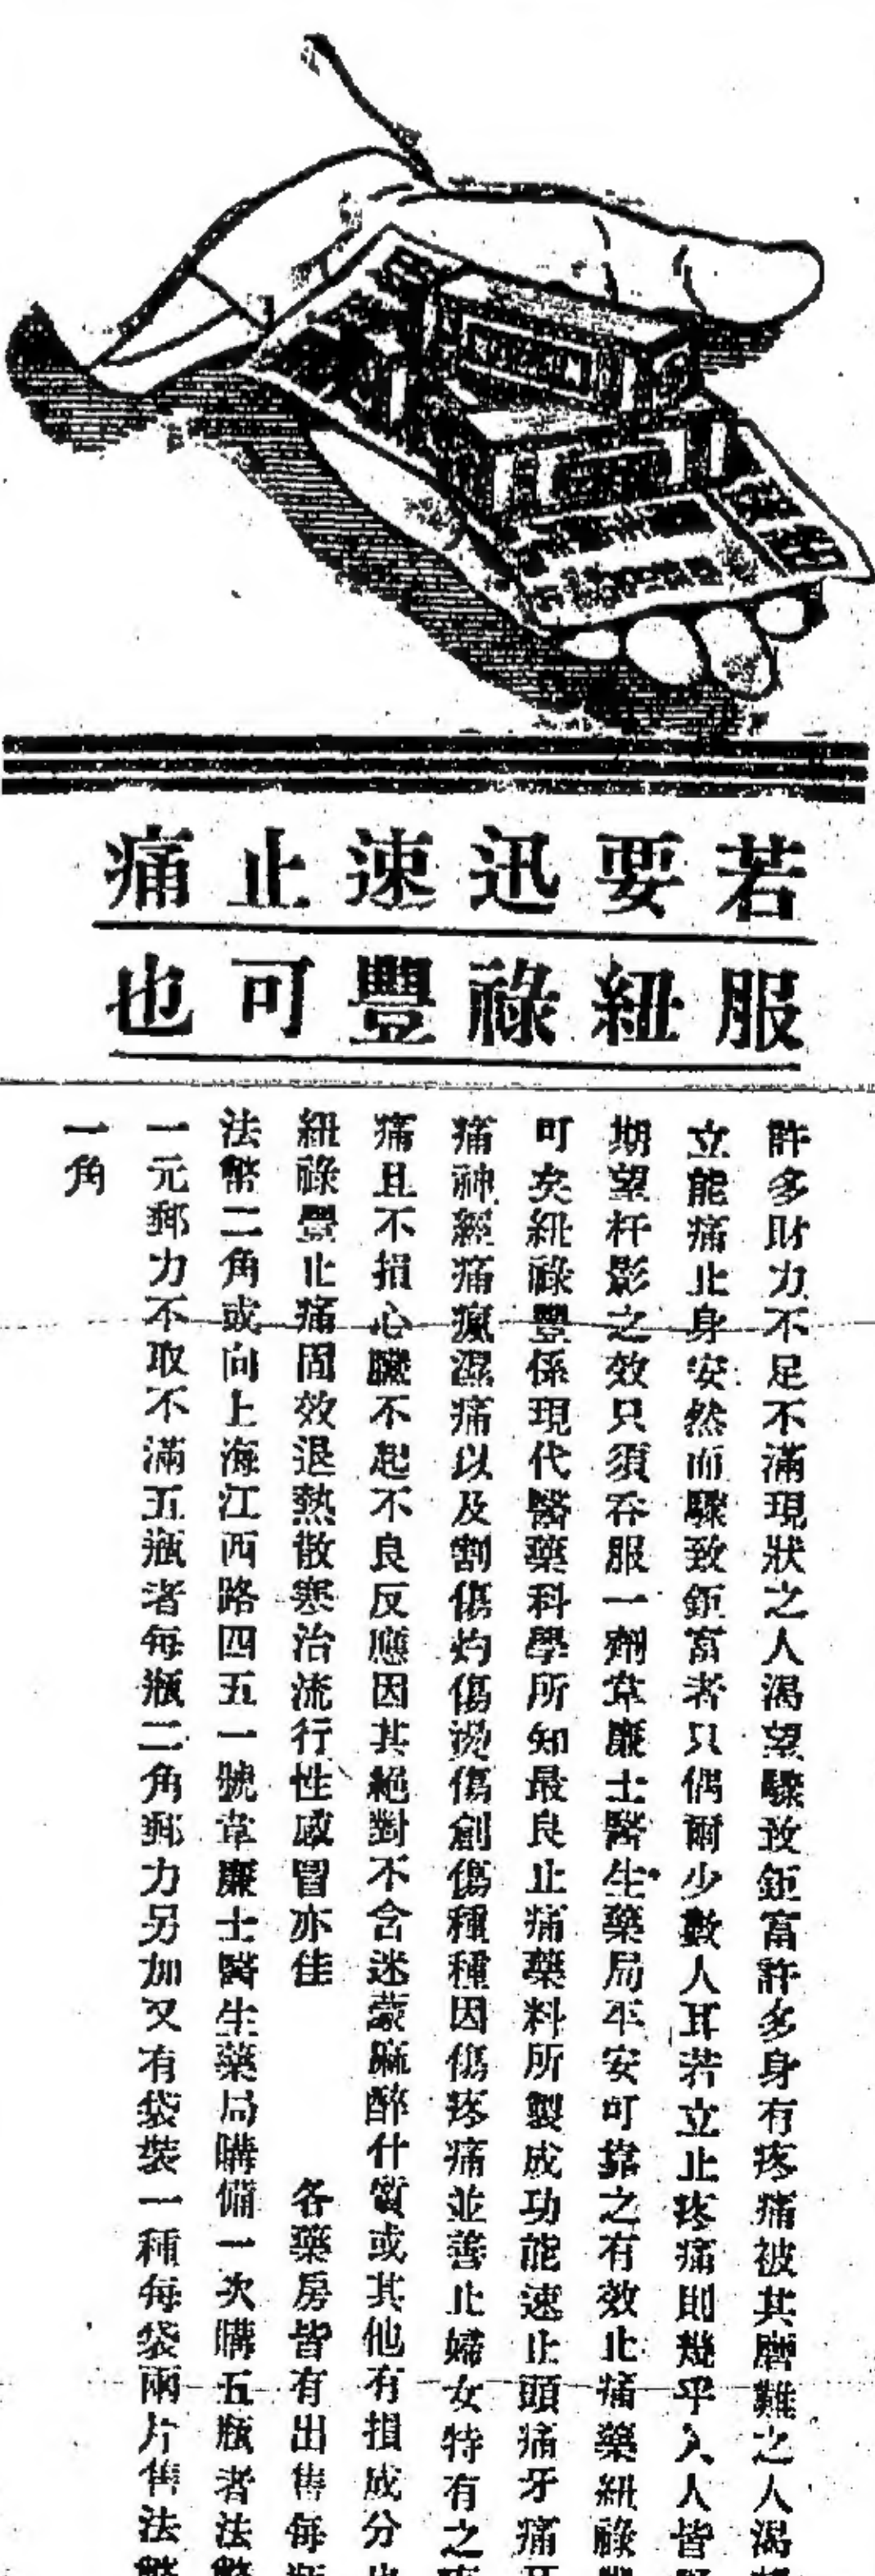 若要迅速止痛
服紐祿豐可也
許多財力不足不滿現狀之人渴望驟致鉅富許多身有疼痛被其磨難之人渴
立能痛止身安然而驟致鉅富者只偶爾少數人耳若立止疼痛則幾乎人人皆
期望杆影之效只須吞服一劑韋廉士醫生藥局平安可靠之有效止痛藥紐祿
可矣紐祿豐係現代醫藥科學所知最良止痛藥料所製成功能速止頭痛牙痛
痛神經痛瘋濕痛以及割傷灼傷燙傷創傷種種因傷疼痛並善止婦女特有之
痛且不損心臟不起不良反應因其絕對不含迷蒙麻醉什質或其他有損成分
紐祿豐止痛固效退熱散寒治流行性感冒亦佳 各藥房皆有出售每
法幣二角或向上海江西路四五一號韋廉士醫生藥局購備一次購五瓶者法
一元郵力不取不滿五瓶者每瓶二角郵力另加又有袋裝一種每袋兩片售法
一角